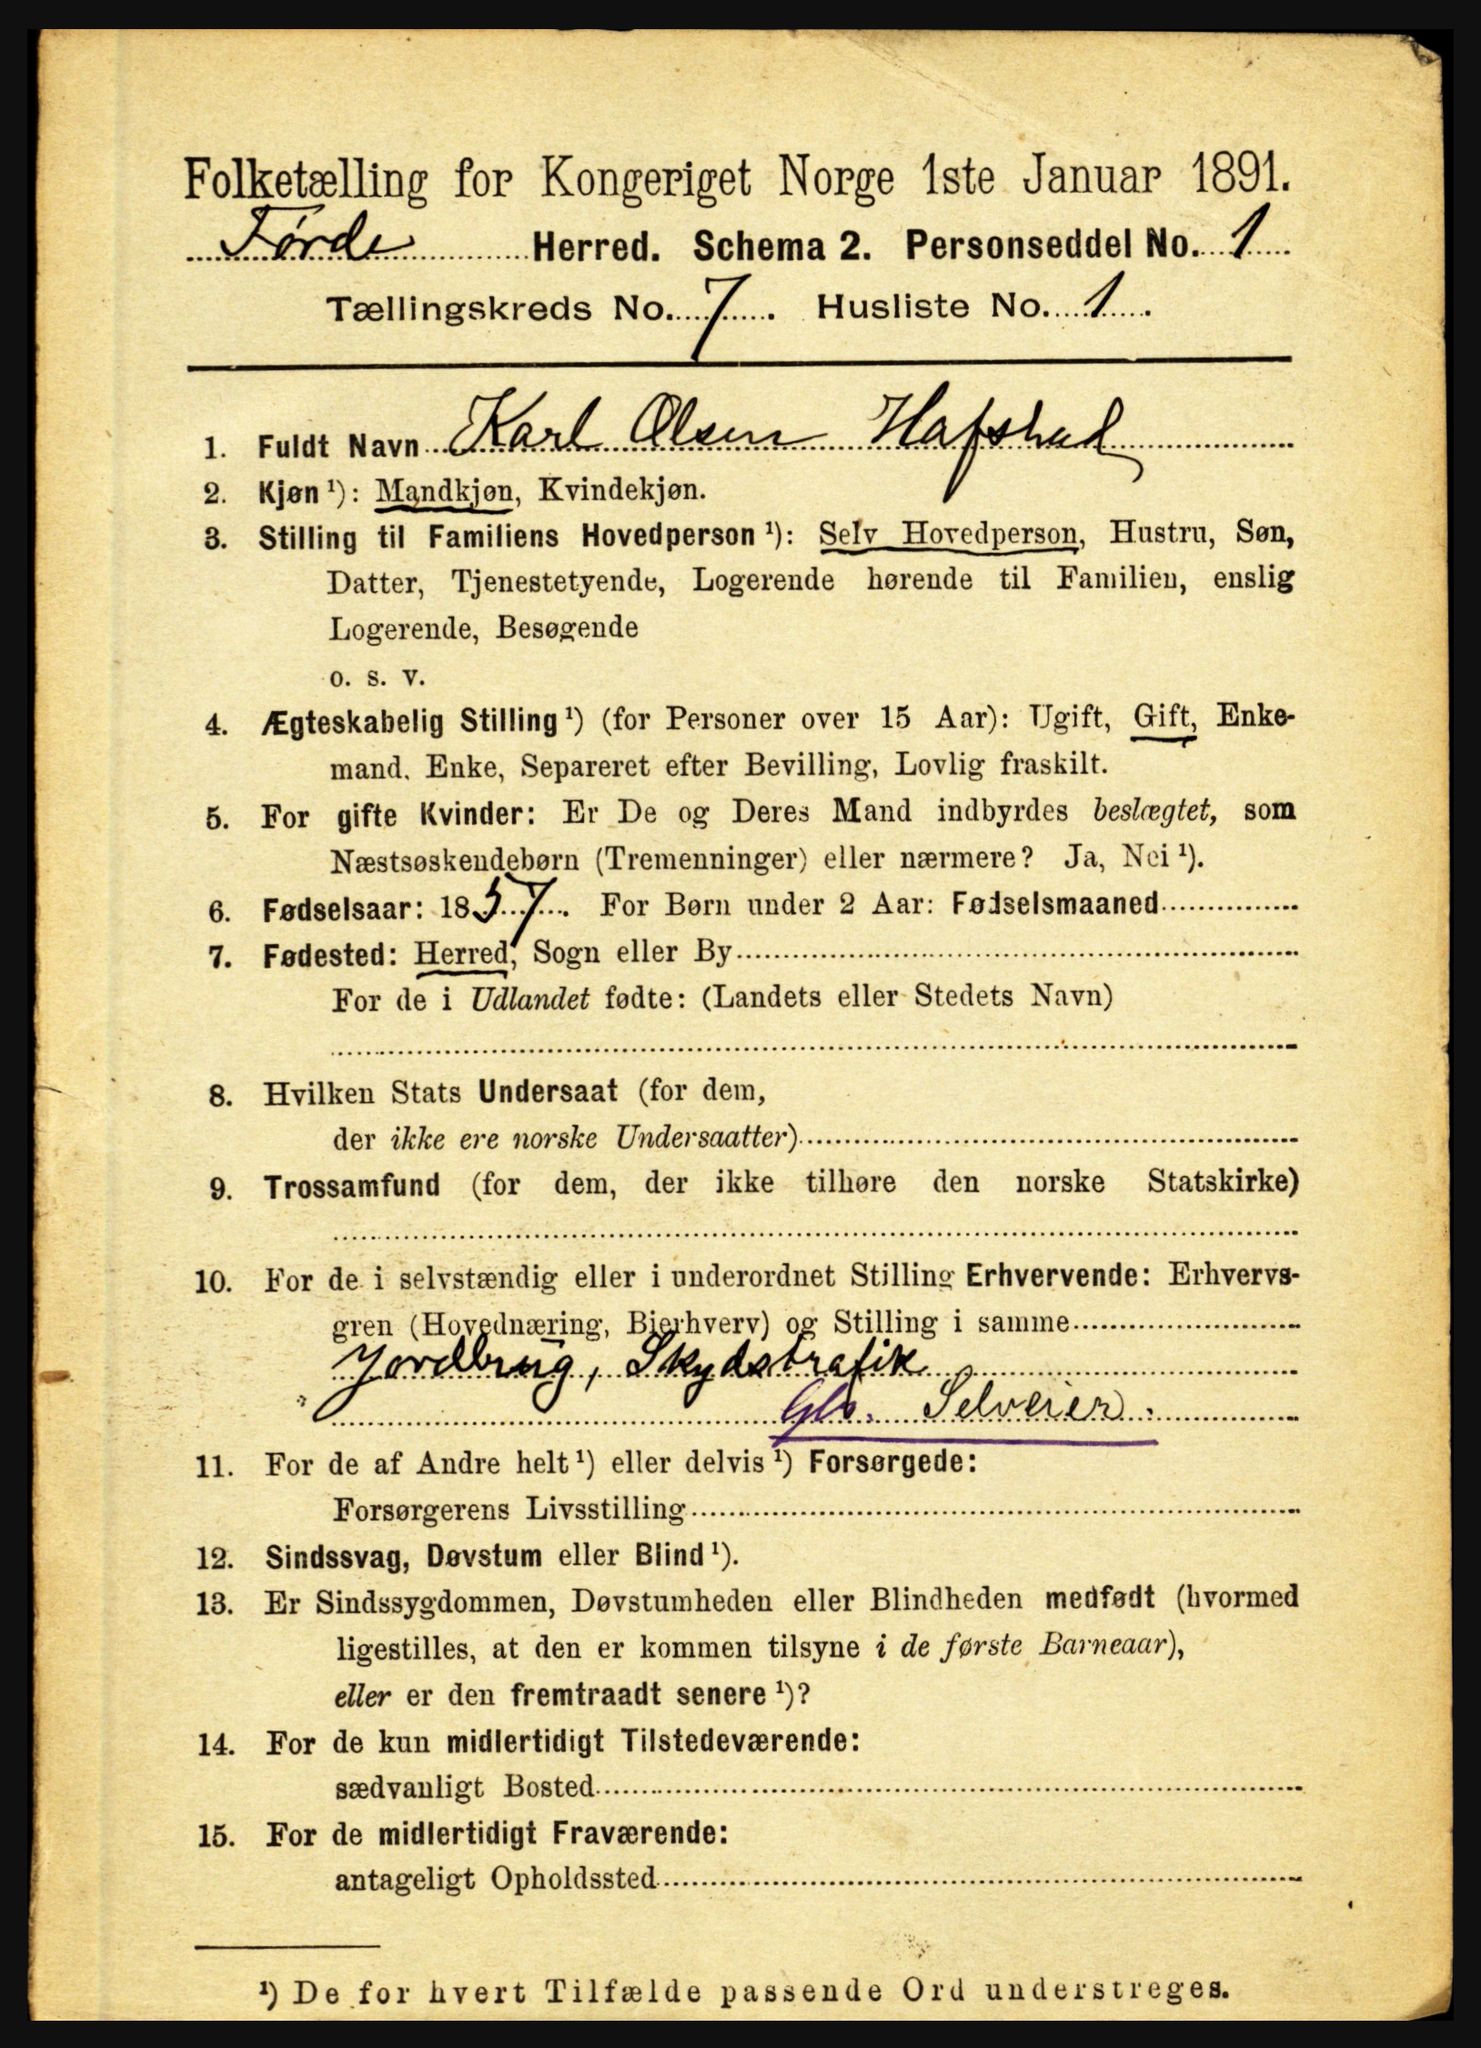 Folketælling for Kongeriget Norge 1ste Januar 1891.
Førde Herred. Schema 2. Personseddel No. 1
Tællingskreds No. 7. Husliste No. 1.
1. Fuldt Navn Karl Olsen Hafstad
2. Kjøn ¹): Mandkjøn, Kvindekjøn.
3. Stilling til Familiens Hovedperson ¹): Selv Hovedperson, Hustru, Søn,
Datter, Tjenestetyende, Logerende hørende til Familien, enslig
Logerende, Besøgende
o. s. v.
4. Ægteskabelig Stilling ¹) (for Personer over 15 Aar): Ugift, Gift, Enke-
mand, Enke, Separeret efter Bevilling, Lovlig fraskilt.
5. For gifte Kvinder: Er De og Deres Mand indbyrdes beslægtet, som
Næstsøskendebørn (Tremenninger) eller nærmere? Ja, Nei ¹).
6. Fødselsaar: 1857. For Børn under 2 Aar: Fødselsmaaned
7. Fødested: Herred, Sogn eller By
For de i Udlandet fødte: (Landets eller Stedets Navn)
8. Hvilken Stats Undersaat (for dem,
der ikke ere norske Undersaatter)
9. Trossamfund (for dem, der ikke tilhøre den norske Statskirke)
10. For de i selvstændig eller i underordnet Stilling Erhvervende: Erhvervs-
gren (Hovednæring, Bierhverv) og Stilling i samme
Jordbrug, Skydstrafik
Gb. Selveier.
11. For de af Andre helt ¹) eller delvis ¹) Forsørgede:
Forsørgerens Livsstilling
12. Sindssvag, Døvstum eller Blind ¹).
13. Er Sindssygdommen, Døvstumheden eller Blindheden medfødt (hvormed
ligestilles, at den er kommen tilsyne i de første Barneaar),
eller er den fremtraadt senere ¹)?
14. For de kun midlertidigt Tilstedeværende:
sædvanligt Bosted
15. For de midlertidigt Fraværende:
antageligt Opholdssted
¹) De for hvert Tilfælde passende Ord understreges.